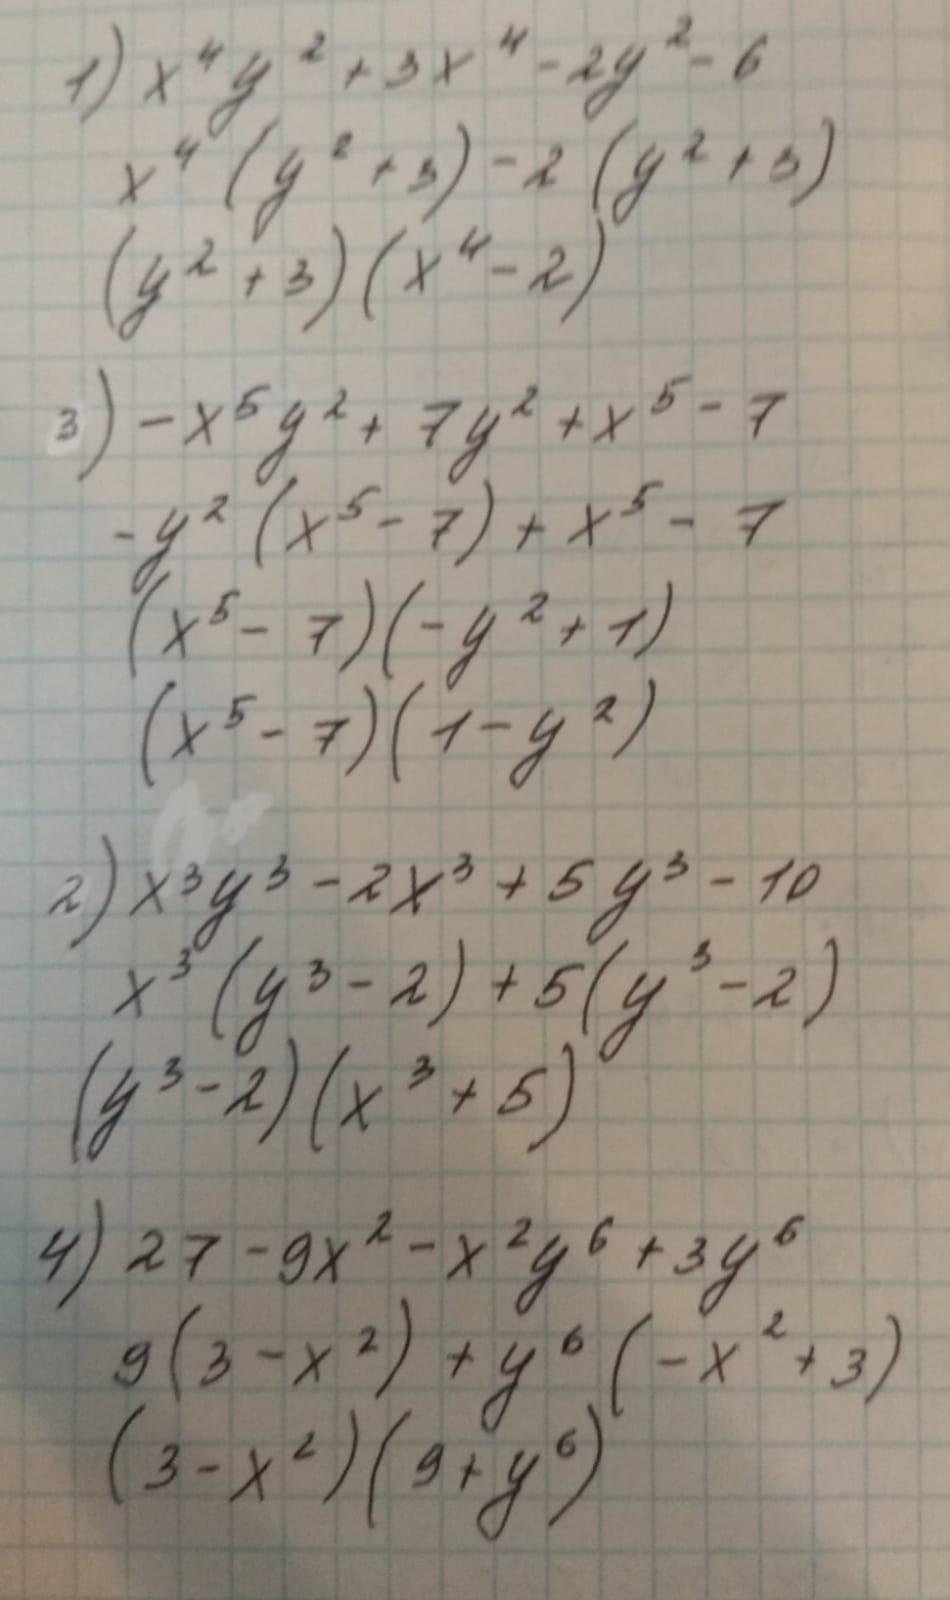 1) x⁴y² + 3x⁴ - 2y² - 6
x⁴ (y² + 3) - 2 (y² + 3)
(y² + 3) (x⁴ - 2)
3) - x⁵y² + 7y² + x⁵ - 7
- y² (x⁵ - 7) + x⁵ - 7
(x⁵ - 7) (- y² + 1)
(x⁵ - 7) (1 - y²)
2) x³y³ - 2x³ + 5y³ - 10
x³ (y³ - 2) + 5 (y³ - 2)
(y³ - 2) (x³ + 5)
4) 27 - 9x² - x²y⁶ + 3y⁶
9 (3 - x²) + y⁶ (- x² + 3)
(3 - x²) (9 + y⁶)